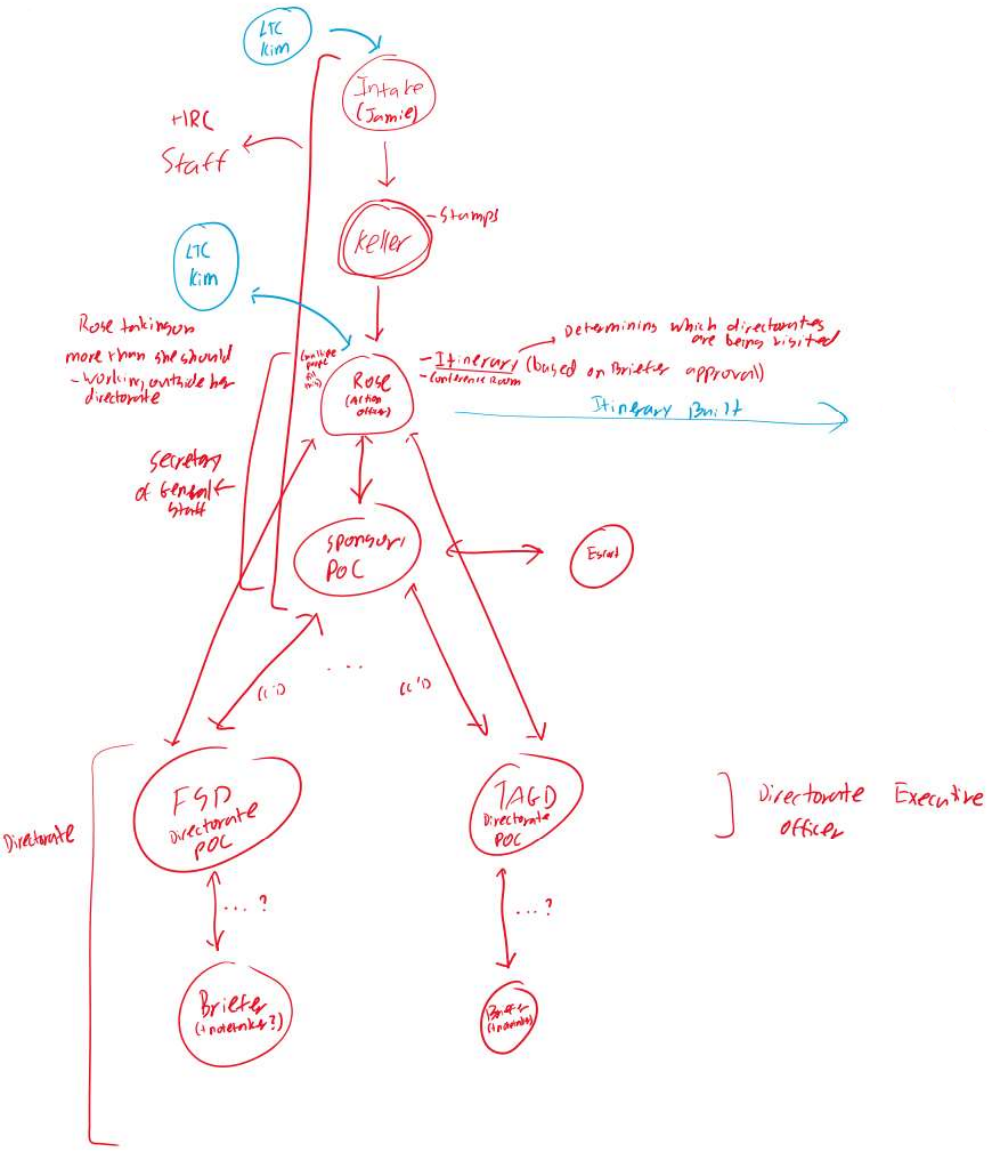 LTC
Kim
Intake
(Jamie)
HRC
Staff
Keller
- Stamps
LTC
Kim
Rose taking on
more than she should
- working outside her
directorate
(multiple
people
Rose
(Action
officer)
- Itinerary (based on Briefer approval)
- Conference Room
Determining which directorates
are being visited
Itinerary Built
Secretary
of General
Staff
Sponsor/
POC
Escort
...
cc'd
cc'd
Directorate
FSD
Directorate
POC
TAGD
Directorate
POC
Directorate Executive
Officer
... ?
... ?
Briefer
(+ notetaker?)
Briefer
(+ notetaker)